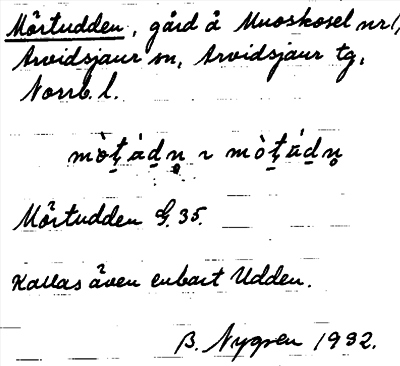 Mörtudden, gård å Muoskosel nr 1,
Arvidsjaur sn, Arvidsjaur tg,
Norrb. l.
mò̤ṭádn̥ ~ mò̤ṭúdn̥
Mörtudden G. 35.
Kallas även enbart Udden.
B. Nygren 1932.